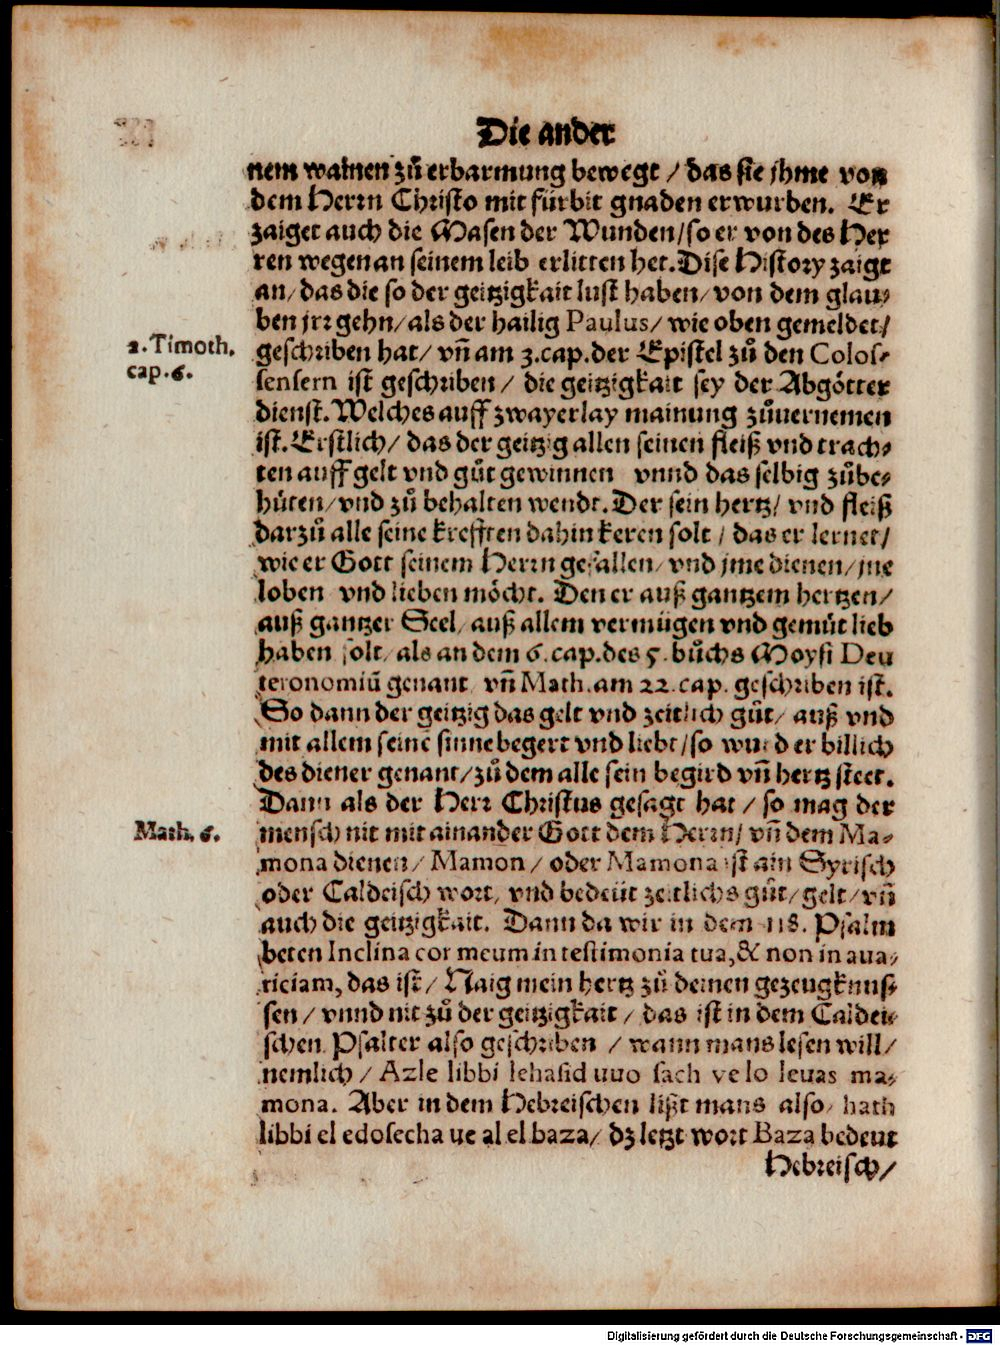 Die ander
nem wainen zů erbarmung bewegt / das sie jhme von
dem Herrn Christo mit fürbit gnaden erwurben. Er
zaiget auch die Masen der Wunden/so er von des Her
ren wegen an seinem leib erlitten het. Dise History zaigt
an/das die so der geitzigkait lust haben/von dem glau-
ben jrr gehn/als der hailig Paulus/wie oben gemeldet/
2. Timoth. cap. 6.
geschriben hat/vñ am 3.cap.der Epistel zů den Colos-
sensern ist geschriben / die geitzigkait sey der Abgötter
dienst. Welches auff zwayerlay mainung zůuernemen
ist. Erstlich/ das der geitzig allen seinen fleiß vnd trach-
ten auff gelt vnd gůt gewinnen vnnd das selbig zůbe-
hüten/vnd zů behalten wendt. Der sein hertz/ vnd fleiß
darzů alle seine krefften dahin keren solt / das er lernet/
wie er Gott seinem Herrn gefallen/vnd jme dienen/jne
loben vnd lieben möcht. Den er auß gantzem hertzen/
auß gantzer Seel/auß allem vermügen vnd gemůt lieb
haben solt/als an dem 6.cap.des 5.bůchs Moysi Deu
teronomiũ genant vñ Math.am 22.cap. geschriben ist.
So dann der geitzig das gelt vnd zeitlich gůt/ auß vnd
mit allem seinē sinne begert vnd liebt/so wurd er billich
des diener genant/zů dem alle sein begird vñ hertz steet.
Dann als der Herr Christus gesagt hat / so mag der
Math. 6.
mensch nit mit ainander Gott dem Herrn/ vñ dem Ma-
mona dienen/ Mamon / oder Mamona ist ain Syrisch
oder Caldeisch wort, vnd bedeüt zeitlichs gůt/gelt/vñ
auch die geitzigkait. Dann da wir in dem 118. Psalm
beten Inclina cor meum in testimonia tua,& non in aua-
riciam, das ist/ Naig mein hertz zů deinen gezeugknus-
sen / vnnd nit zů der geitzigkait / das ist in dem Caldei-
schen Psalter also geschriben / wann mans lesen will/
nemlich / Azle libbi lehasid uuo sach ve lo leuas ma-
mona. Aber in dem Hebreischen lißt mans also/ hath
libbi el edosecha ue al el baza/ dz letzt wort Baza bedeut
Hebreisch/
Digitalisierung gefördert durch die Deutsche Forschungsgemeinschaft - DFG